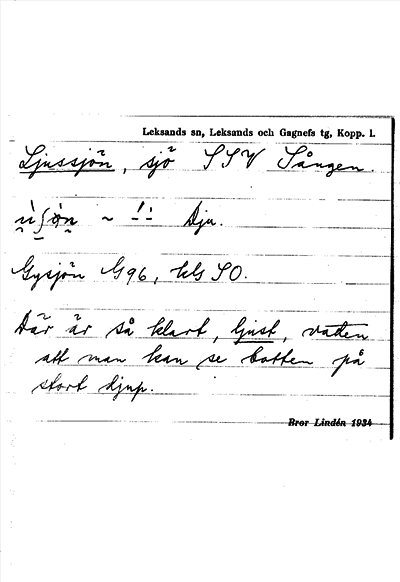 Leksands sn, Leksands och Gagnefs tg, Kopp. l.
Ljussjön, sjö SSV Sången.
~ Dju.
Gysjön G96, kbl SO.
Där är så klart, ljust, vatten
att man kan se botten på
stort djup.
Bror Lindén 1934